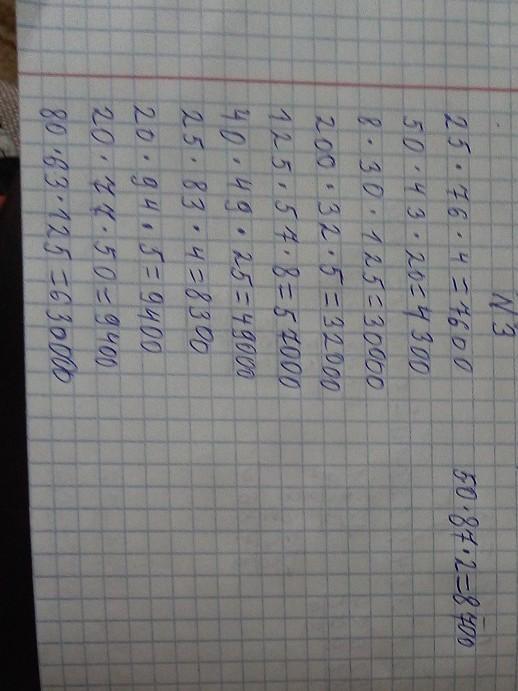 N3
25·76·4=7600
50·43·20=4300
8·30·125=30000
200·32·5=32000
125·57·8=57000
40·49·25=49000
25·83·4=8300
20·94·5=9400
20·77·50=9400
80·63·125=630000
50·87·2=8700